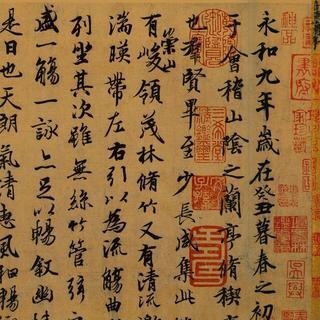 永和九年歲在癸丑暮春之初
于會稽山陰之蘭亭脩稧
也羣賢畢至少長咸集此
有崇山峻領茂林脩竹又有清流激
湍暎帶左右引以為流觴曲
列坐其次雖無絲竹管弦
盛一觴一詠亦足以暢敘幽情
是日也天朗氣清惠風和暢